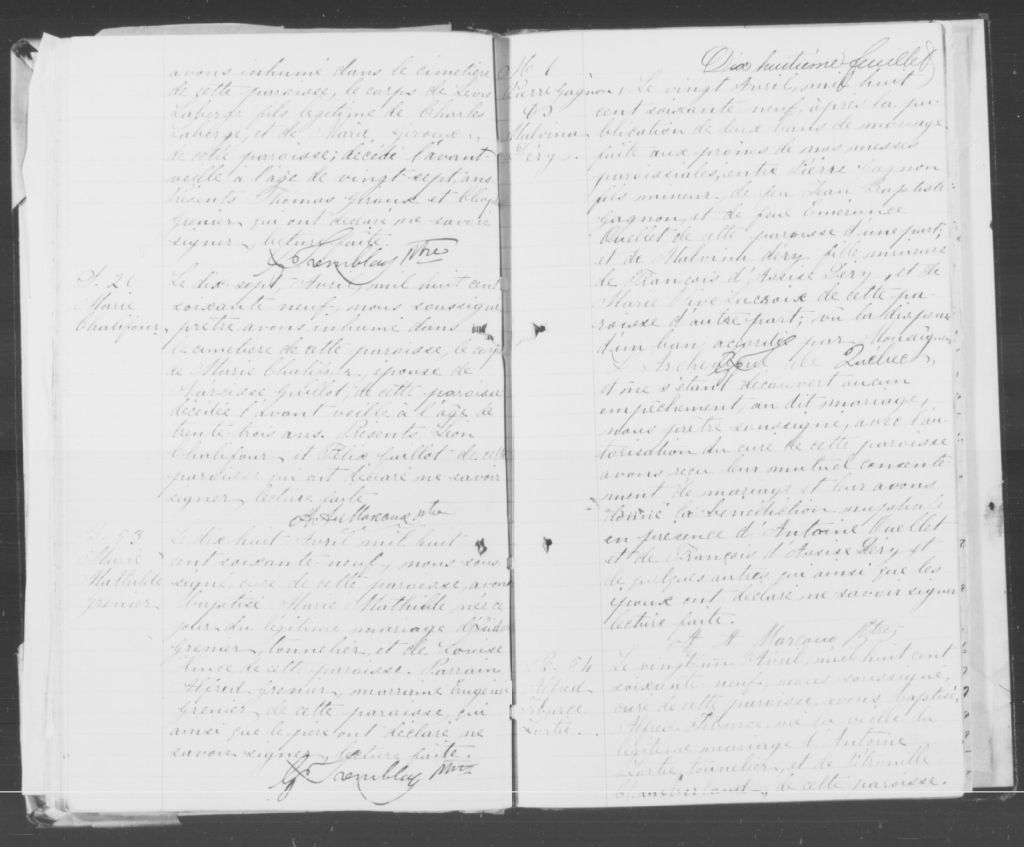 avons inhumé dans le cimetière
de cette paroisse, le corps de Louis
Laberge fils légitime de Charles
Laberge, et de Marie Giroux,
de cette paroisse; décédé l'avant-
veille a l'age de vingt sept ans
Présents Thomas Giroux et
Grenier qui ont déclaré ne savoir
signer, lecture faite.
Tremblay Ptre
S. 26
Marie
Chalifour.
Le dix sept, Avril, mil huit cent
soixante neuf, nous soussigné
prêtre avons inhumé dans
le cimetière de cette paroisse, le corps
de Marie Chalifour, épouse de
Narcisse Guillot, de cette paroisse
décédée l'avant veille, a l'âge de
trente trois ans. Présents Léon
Chalifour, et Félix Guillot de cette
paroisse qui ont déclaré ne savoir
signer lecture faite
Marcoux, ptre
B. 53
Marie
Mathilde
Grenier
Le dix huit Avril mil huit
cent soixante neuf, nous sous
signé, curé de cette paroisse, avons
baptisé Marie Mathilde née ce
jour du légitime mariage
Grenier, tonnelier, et de Louise
de cette paroisse. Parrain
Alfred Grenier, marraine Eugénie
Grenier de cette paroisse, qui
ainsi que le père ont déclaré ne
savoir signer, lecture faite.
Tremblay Ptre
Dix huitième feuillet
M. 6
Pierre Gagnon
&
Malvina
Déry.
Le vingt Avril, mil huit
cent soixante neuf, après la pu-
blication de deux bans de mariage
faite aux prônes de nos messes
paroissiales, entre Pierre Gagnon
fils mineur de feu Jean Baptiste
Gagnon, et de feue Emérance
Ouellet de cette paroisse d'une part;
et de Malvina Déry fille mineure
de François d'Assise Déry, et de
Marie Lacroix de cette pa-
roisse d'autre part; vû la dispense
d'un ban accordée par Monseigneur
Archevêque de Québec,
et ne s'étant découvert aucun
empêchement, au dit mariage,
nous prêtre soussigné, avec l'au-
torisation du curé de cette paroisse
avons reçu leur mutuel consente-
ment de mariage et leur avons
donné la bénédiction nuptiale
en présence d'Antoine Ouellet
et de François d'Assise Déry et
de quelques autres qui ainsi que les
époux ont déclaré ne savoir signer
lecture faite.
A H Marcoux Ptre
B. 54
Alfred
Tiburce
Lortie.
Le vingt un Avril, mil huit cent
soixante neuf, nous soussigné,
curé de cette paroisse, avons baptisé
Alfred Tiburce, né la veille du
légitime mariage d'Antoine
Lortie, tonnelier, et de Pétronille
de cette paroisse.